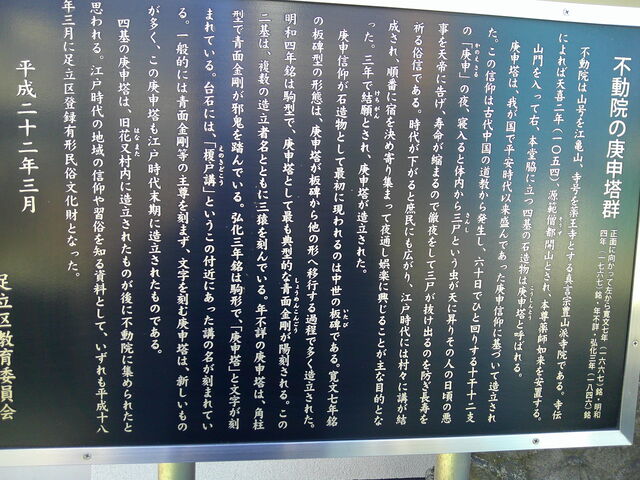 不動院の庚申塔群
正面に向かって左から寛文七年(一六六七)銘・明和
四年(一七六七)銘・年不詳・弘化三年(一八四六)銘
不動院は山号を江亀山、寺号を薬王寺とする真言宗豊山派寺院である。寺伝
によれば天喜二年(一〇五四)、源範僧都開山とされ、本尊薬師如来を安置する。
山門を入って右、本堂脇に立つ四基の石造物は庚申塔と呼ばれる。
庚申塔は、我が国で平安時代以来盛んであった庚申信仰に基づいて造立され
た。この信仰は古代中国の道教から発生し、六十日でひと回りする十干十二支
の「庚申」の夜、寝入ると体内から三尸という虫が天に昇り、その人の日頃の悪
事を天帝に告げ、寿命が縮まるので徹夜をして三尸が抜け出るのを防ぎ長寿を
祈る俗信である。時代が下がると庶民にも広がり、江戸時代には村々に講が結
成され、順番に宿を決め寄り集まって夜通し娯楽に興じることが主な目的とな
った。三年で結願とされ、庚申塔が造立された。
庚申信仰が石造物として最初に現われるのは中世の板碑である。寛文七年銘
の板碑型の形態は、庚申塔が板碑から他の形へ移行する過程で多く造立された。
明和四年銘は駒型で、庚申塔として最も典型的な青面金剛が陽刻される。この
二基は、複数の造立者名とともに三猿を刻んでいる。年不詳の庚申塔は、角柱
型で青面金剛が邪鬼を踏んでいる。弘化三年銘は駒形で、「庚申塔」と文字が刻
まれている。台石には、「榎戸講」というこの付近にあった講の名が刻まれてい
る。一般的には青面金剛等の主尊を刻まず、文字を刻む庚申塔は、新しいもの
が多く、この庚申塔も江戸時代末期に造立されたものである。
四基の庚申塔は、旧花又村内に造立されたものが後に不動院に集められたと
思われる。江戸時代の地域の信仰や習俗を知る資料として、いずれも平成十八
年三月に足立区登録有形民俗文化財となった。
平成二十二年三月
足立区教育委員会